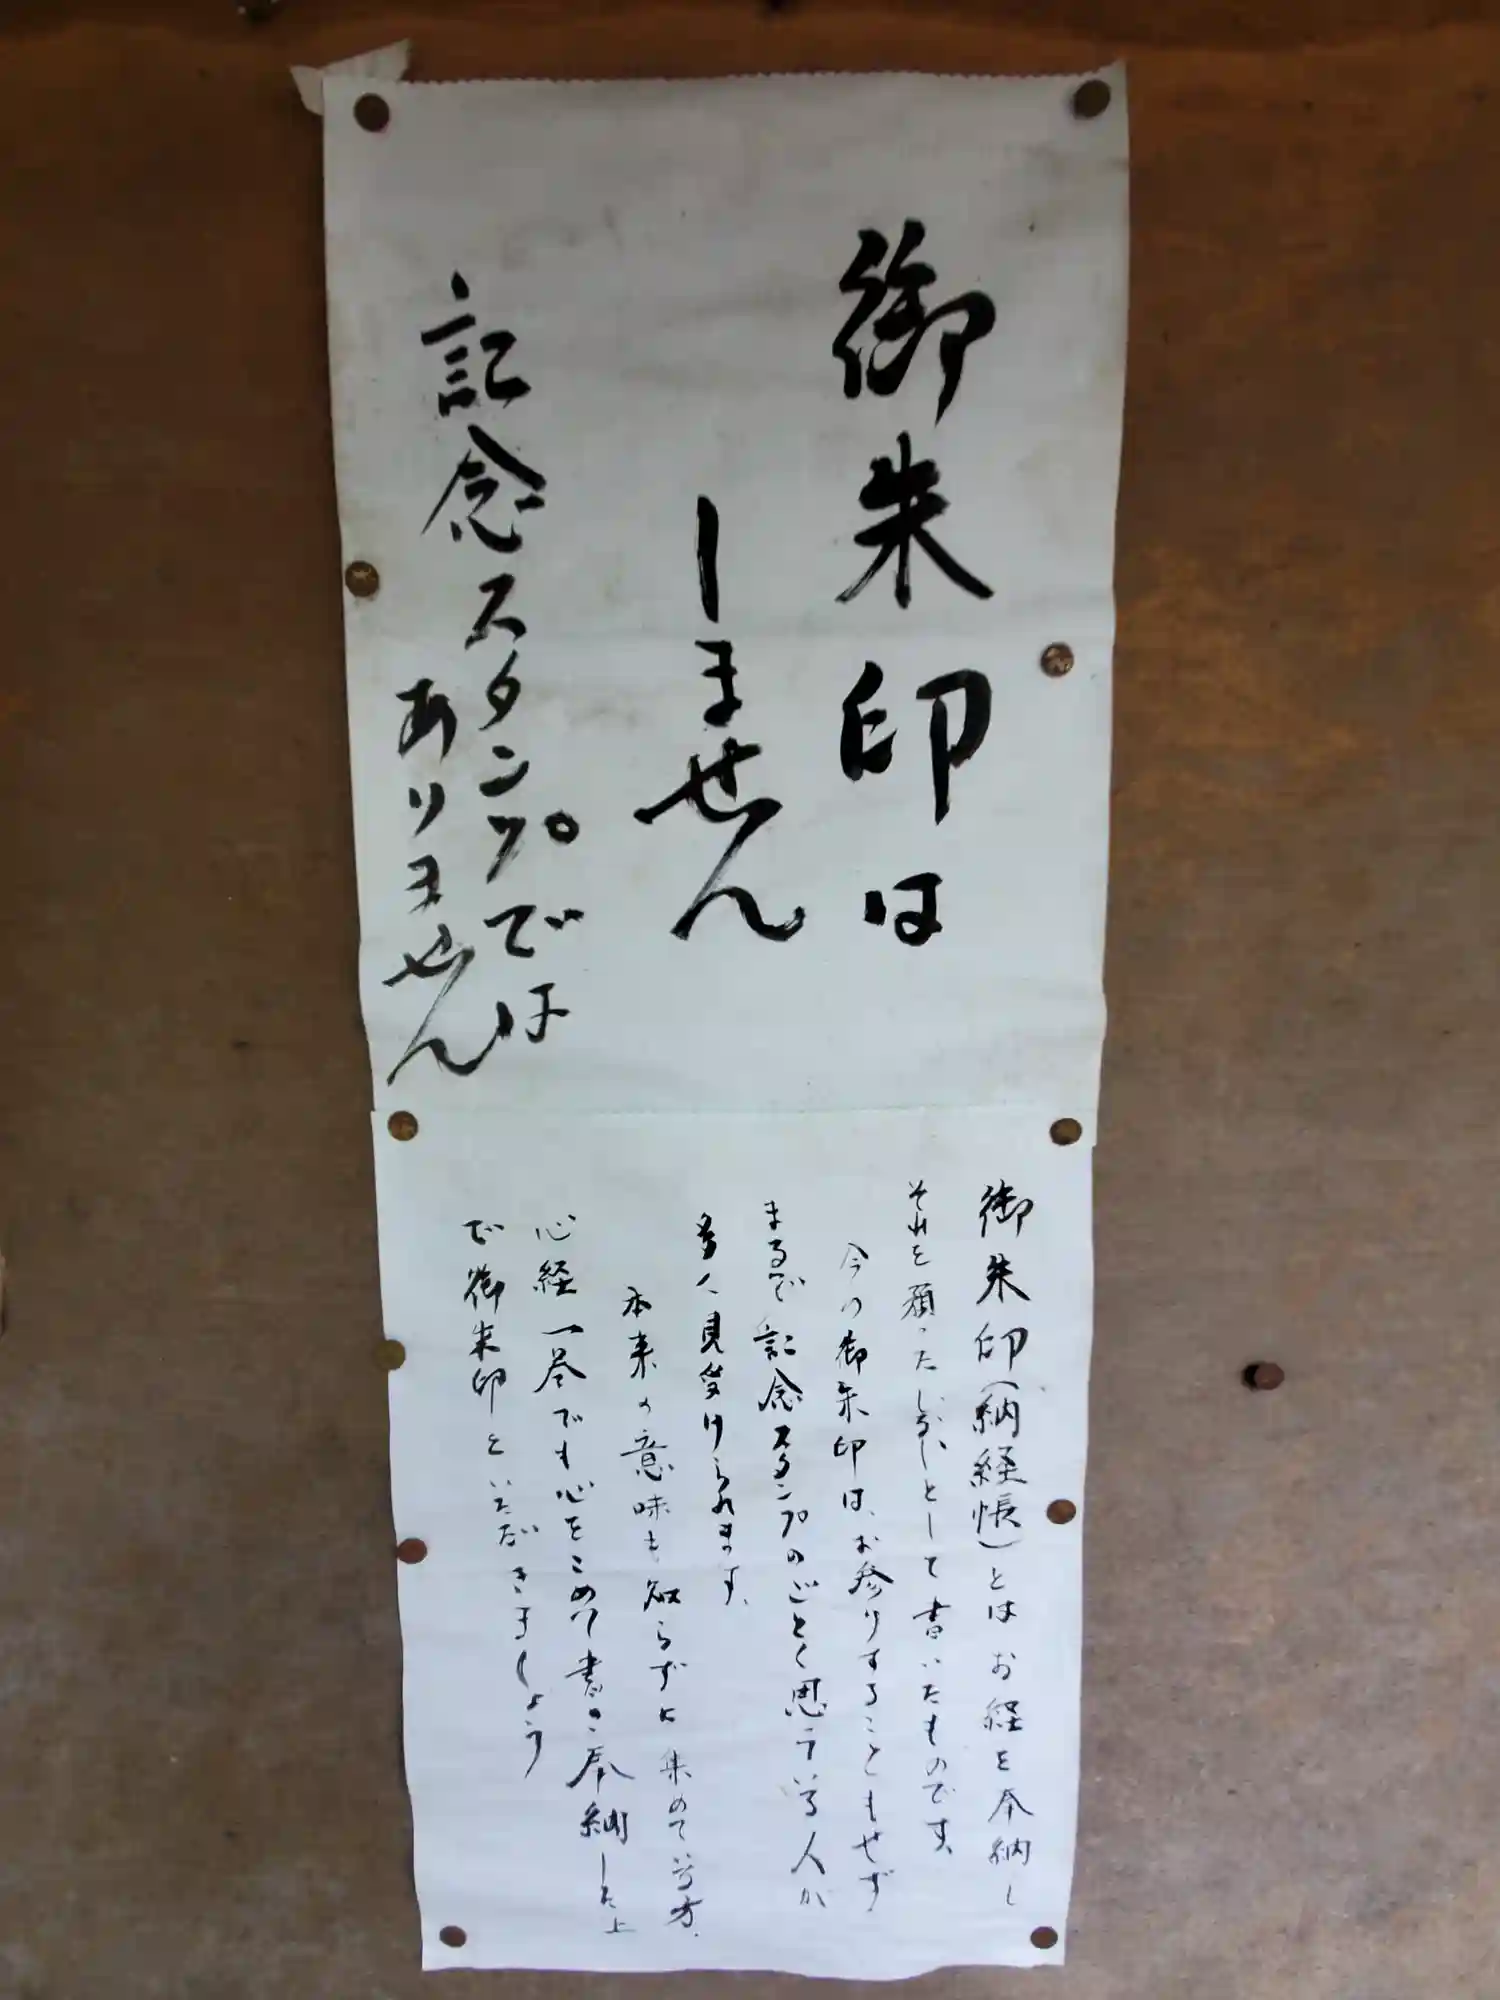 御朱印は
しません
記念スタンプでは
ありません
御朱印(納経帳)とはお経を奉納し
それを願ったしるしとして書いたものです、
今の御朱印は、お参りすることもせず
まるで記念スタンプのごとく思う人が
多く見受けられます、
本来の意味も知らずに集めている方、
心経一巻でも心をこめて書き奉納した上
で御朱印をいただきましょう